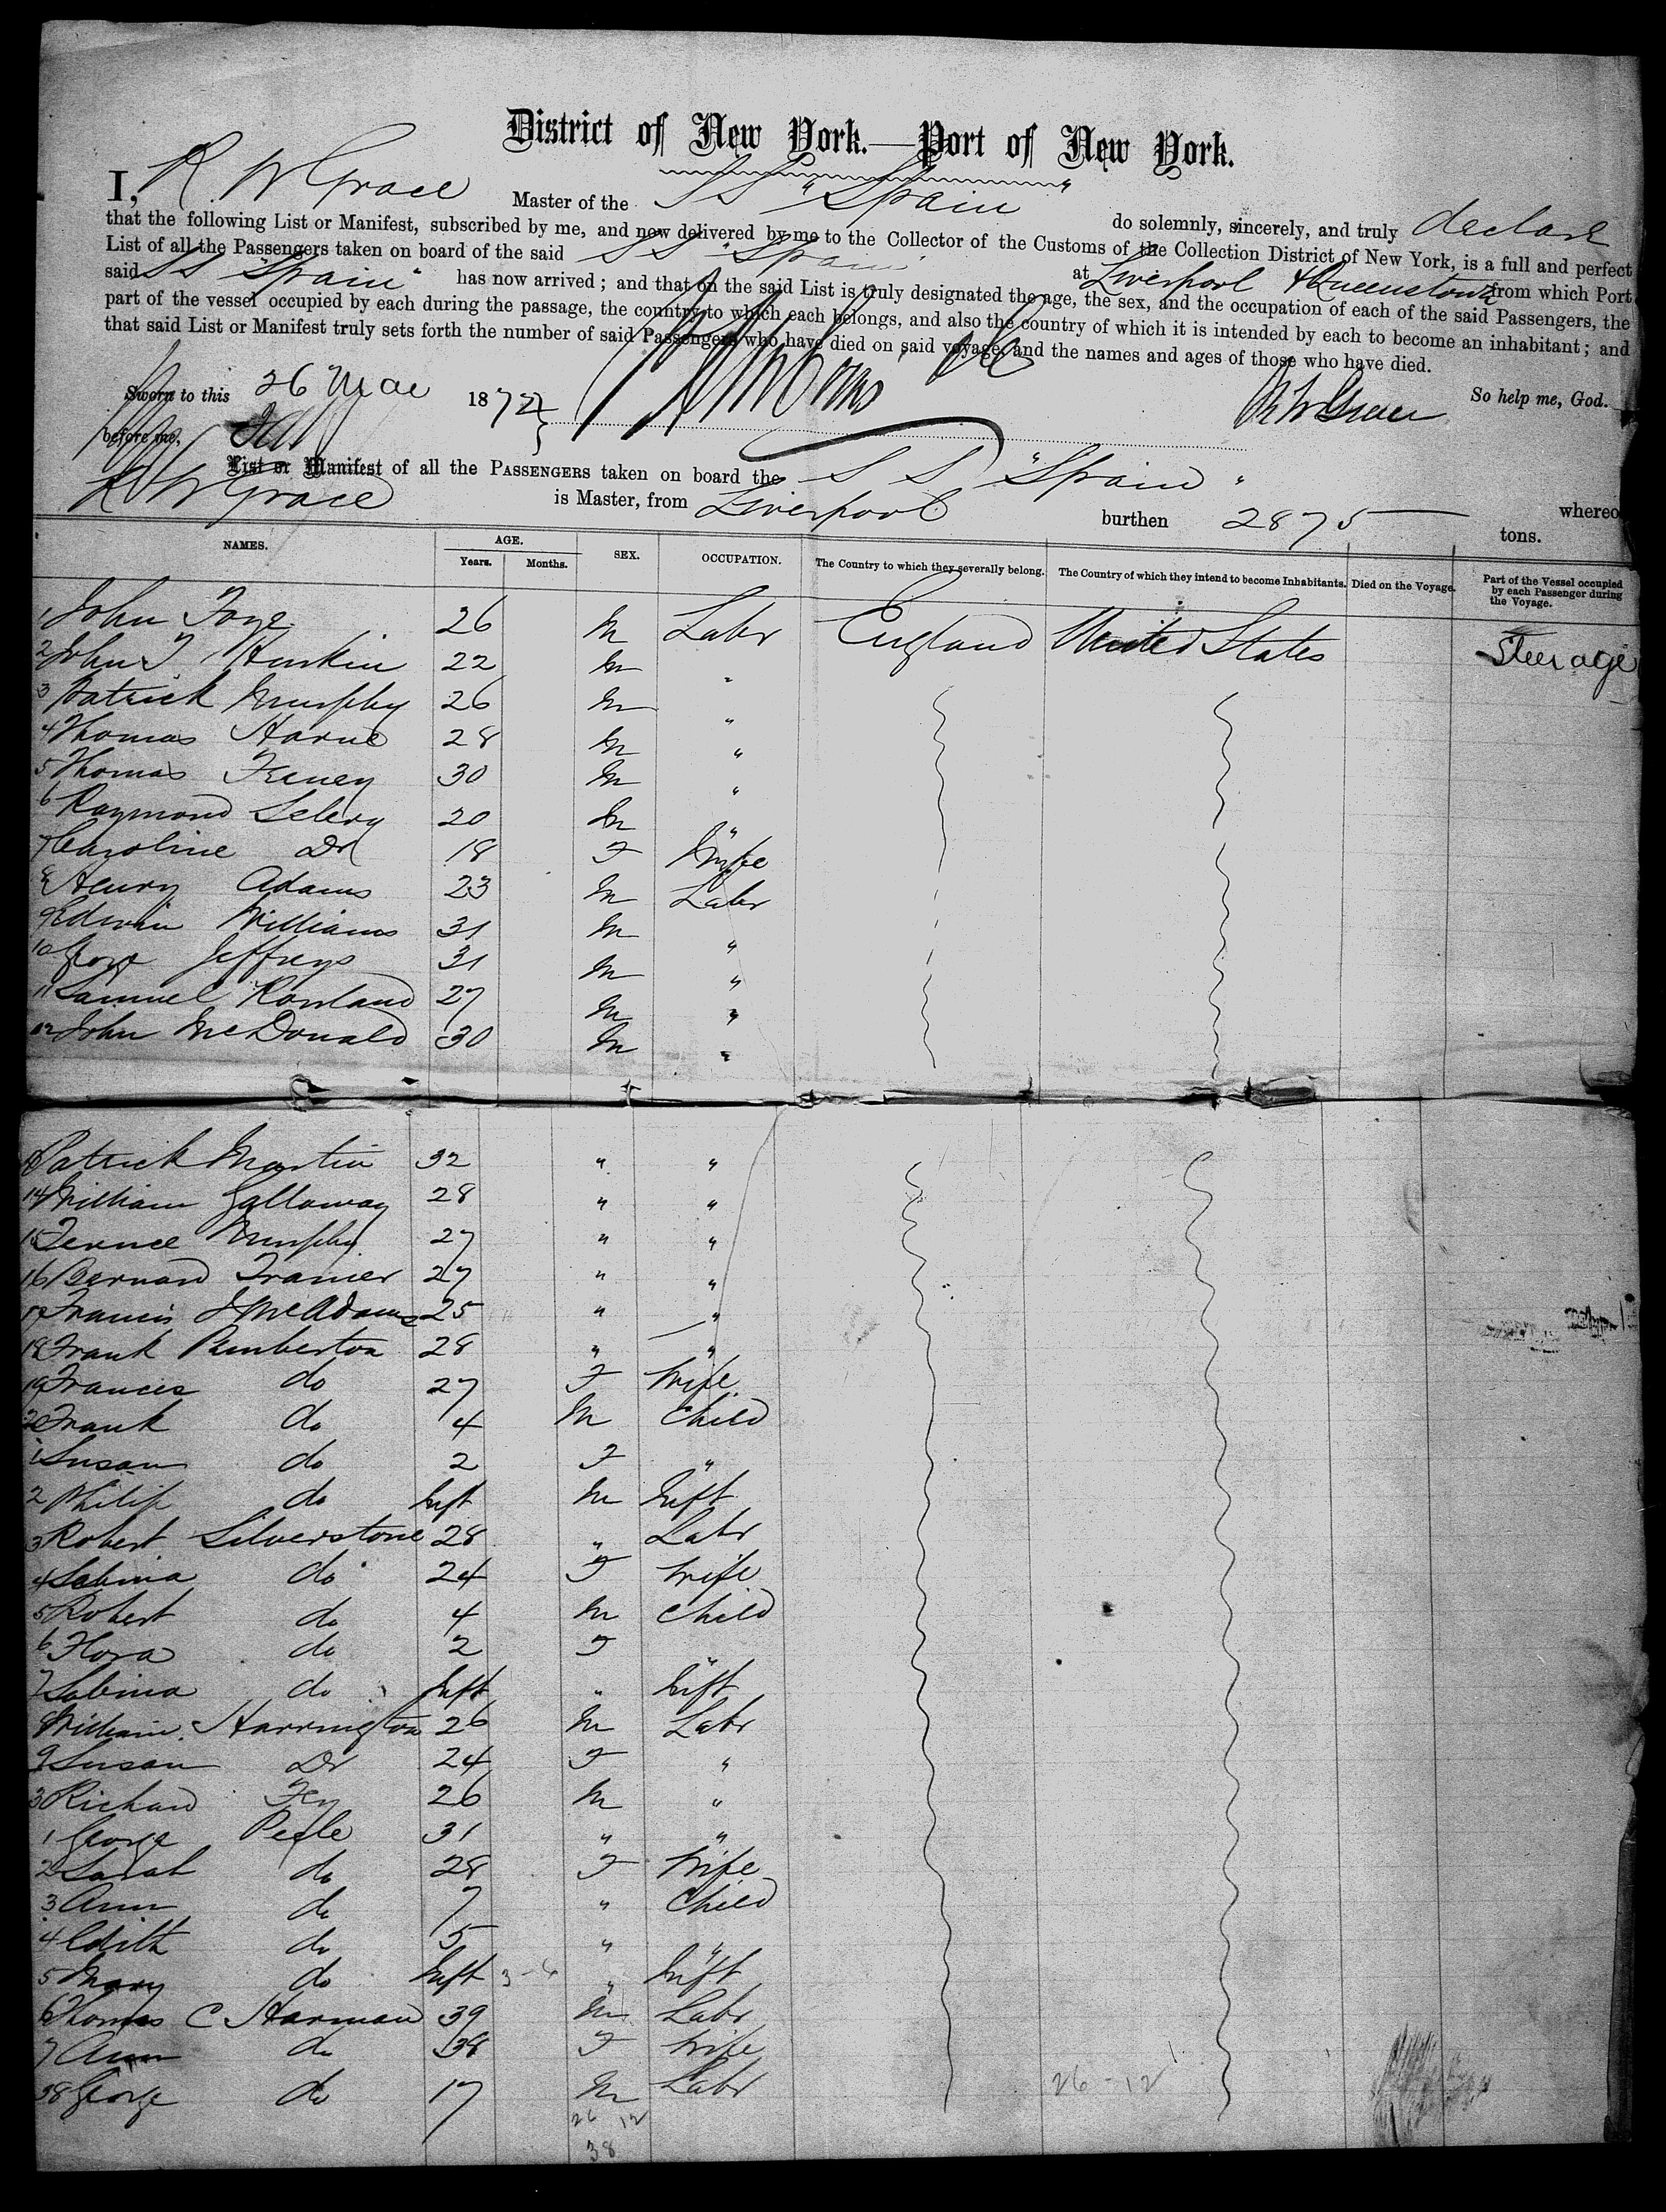 District of New York.—Port of New York.
I, R W Grace Master of the SS "Spain" do solemnly, sincerely, and truly declare
that the following List or Manifest, subscribed by me, and now delivered by me to the Collector of the Customs of the Collection District of New York, is a full and perfect
List of all the Passengers taken on board of the said SS "Spain" at Liverpool & Queenstown from which Port
said SS "Spain" has now arrived; and that on the said List is truly designated the age, the sex, and the occupation of each of the said Passengers, the
part of the vessel occupied by each during the passage, the country to which each belongs, and also the country of which it is intended by each to become an inhabitant; and
that said List or Manifest truly sets forth the number of said Passengers who have died on said voyage, and the names and ages of those who have died.
So help me, God.
Sworn to this 26 1872 R W Grace
before me,
List or Manifest of all the PASSENGERS taken on board the SS "Spain" whereof
R W Grace is Master, from Liverpool burthen 2875 tons.
NAMES. AGE. Years. Months. SEX. OCCUPATION. The Country to which they severally belong. The Country of which they intend to become Inhabitants. Died on the Voyage. Part of the Vessel occupied by each Passenger during the Voyage.
1 John Foye 26 M Labr England United States Steerage
2 John T Huskin 22 M "
3 Patrick Murphy 26 M "
4 Thomas Harne 28 M "
5 Thomas Feney 30 M "
6 Raymond Selery 20 M "
7 Caroline Do 18 F Wife
8 Henry Adams 23 M Labr
9 Edwin Williams 31 M "
10 George Jeffreys 31 M "
11 Samuel Rowland 27 M "
12 John McDonald 30 M "
Patrick Martin 32 " "
14 William Galloway 28 " "
15 Terence Murphy 27 " "
16 Bernard Tramer 27 " "
17 Francis J McAdams 25 " "
18 Frank Pemberton 28 " "
19 Frances do 27 F Wife
20 Frank do 4 M Child
1 Susan do 2 F "
2 Philip do Inft M Inft
3 Robert Silverstone 28 " Labr
4 Sabina do 24 F Wife
5 Robert do 4 M Child
6 Flora do 2 F "
7 Sabina do Inft " Inft
William Harrington 26 M Labr
9 Susan Do 24 F "
3 Richard Fey 26 M "
1 George Pegle 31 " "
2 Sarah do 28 F Wife
3 Ann do 7 " Child
4 Edith do 5 " "
5 Mary do Inft " Inft
6 Thomas C Harman 39 M Labr
7 Ann do 38 F Wife
38 George do 17 M Labr
26-12
26 12
38